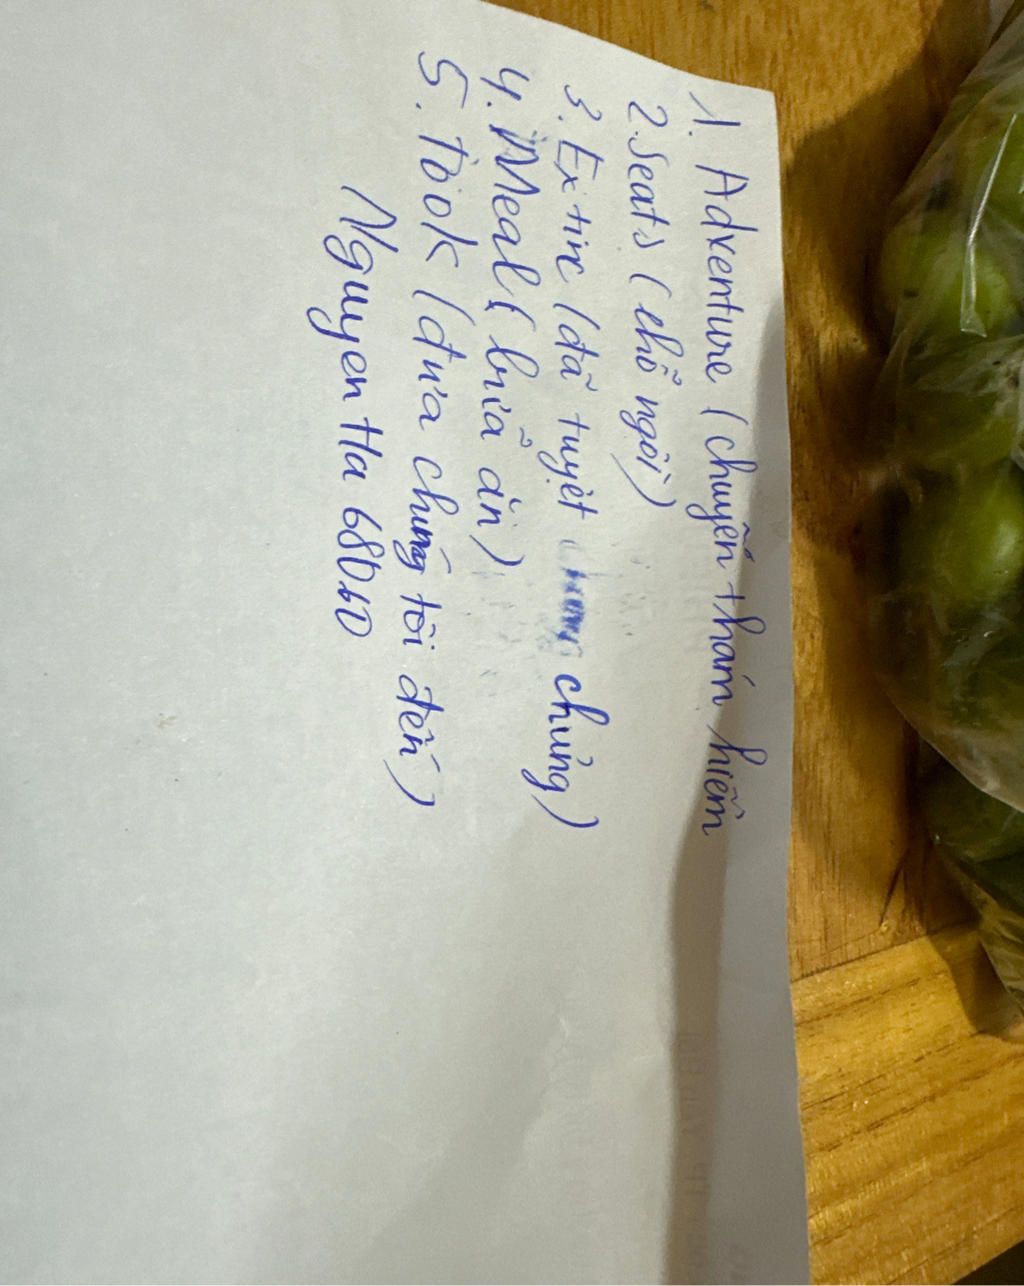 1. Adventure (chuyến thám hiểm
2. Seats (chỗ ngồi)
3. Extinc (đã tuyệt chủng)
4. Meal (bữa ăn)
5. Took (đưa chúng tôi đến)
Nguyen Ha 68060